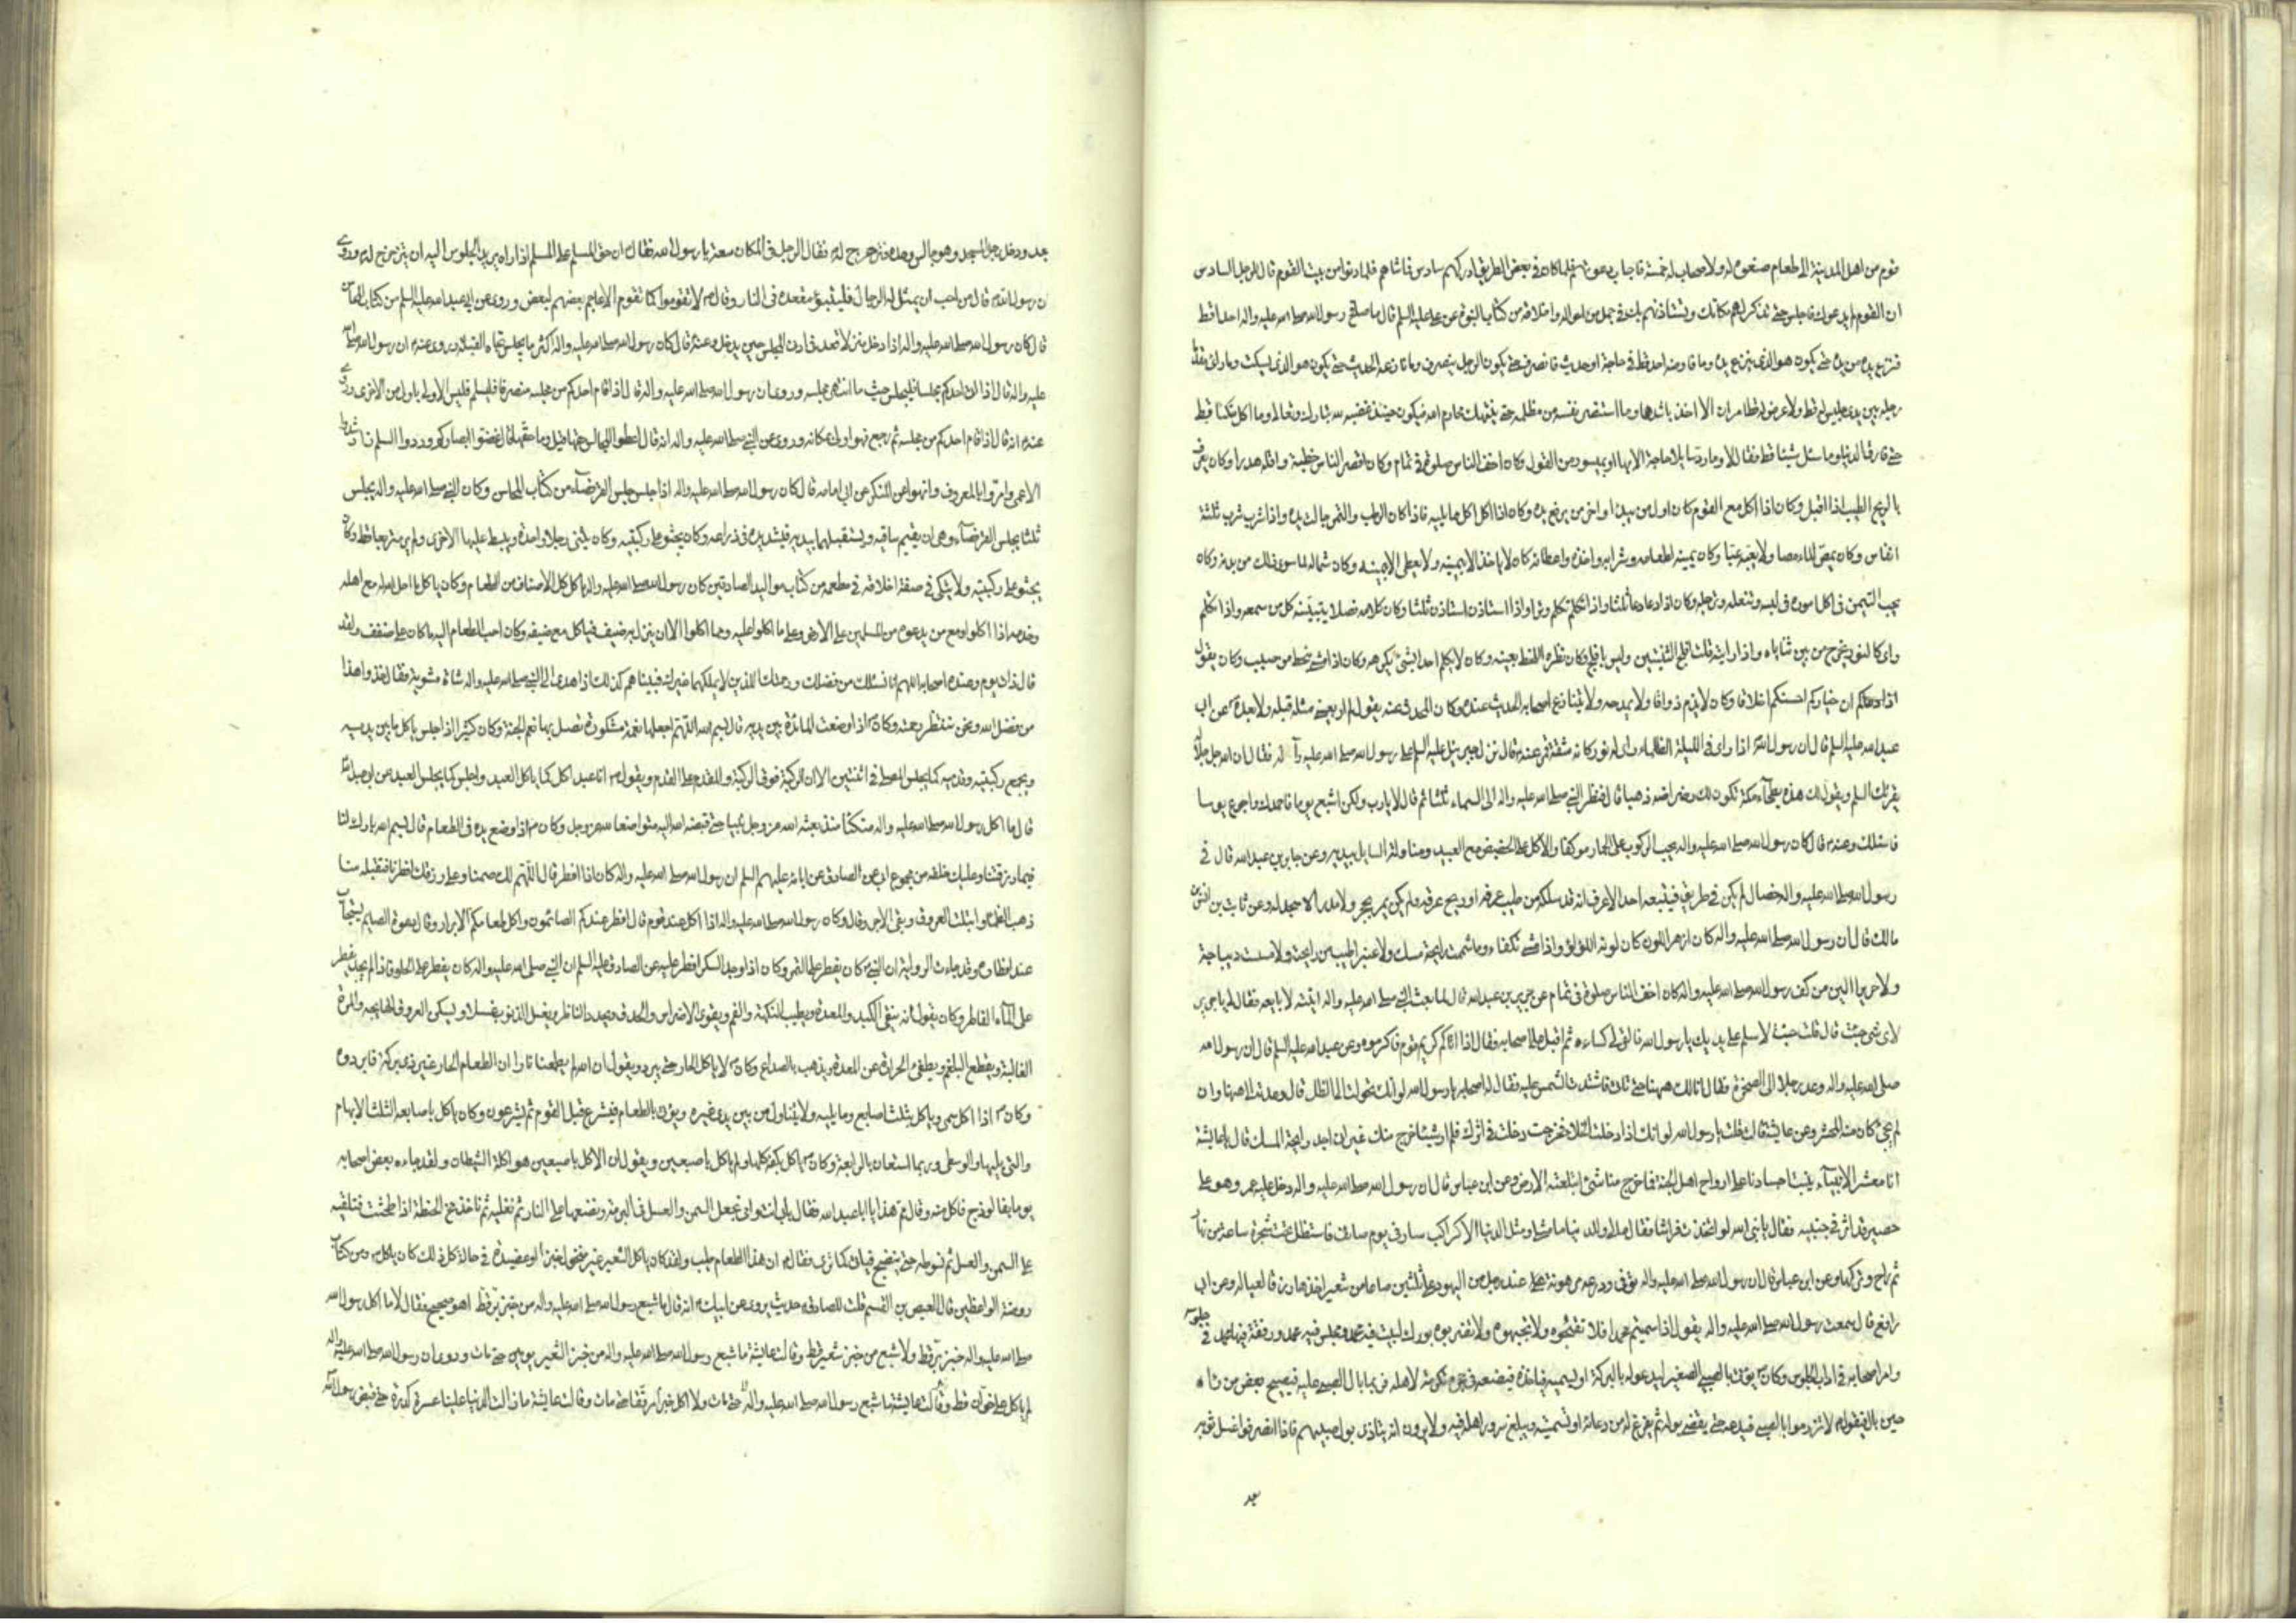 قوم من اهل المدينة الى طعام صنعوه له ولاصحاب له خمسة فاجاب دعوتهم فلما كان في بعض الطريق ادركهم سادس فماشاهم فلما دنوا من بيت القوم قال للرجل السادس
ان القوم لم يدعوك فاجلس حتى نذكر لهم مكانك ونستاذنهم بك في جمل من احواله واخلاقه من كتاب النبوة عن علي عليه السلم قال ما صافح رسول الله صلى الله عليه واله احدا قط
فنزع يده من يده حتى يكون هو الذي ينزع يده وما فاوضه احد قط في حاجة او حديث فانصرف حتى يكون الرجل ينصرف وما نازعه الحديث حتى يكون هو الذي يسكت وما راى مقدما
رجله بين يدي جليس له قط ولا عرض له قط امران الا اخذ باشدهما وما انتصر نفسه من مظلمة حتى ينتهك محارم الله فيكون حينئذ غضبه لله تبارك وتعالى وما اكل متكئا قط
حتى فارق الدنيا وما سئل شيئا قط فقال لا وما رد سايلا حاجة الا بها او بميسور من القول وكان اخف الناس صلوة في تمام وكان اقصر الناس خطبة واقله هدرا وكان يعرف
بالريح الطيب اذا اقبل وكان اذا اكل مع القوم كان اول من يبدا واخر من يرفع يده وكان اذا اكل اكل مما يليه فاذا كان الرطب والتمر جالت يده واذا شرب شرب ثلثة
انفاس وكان يمص الماء مصا ولا يعبه عبا وكان يمينه لطعامه وشرابه واخذه واعطائه كان لا ياخذ الا بيمينه ولا يعطي الا بيمينه وكان شماله لما سوى ذلك من بدنه وكان
يحب التيمن في كل اموره في لبسه وتنعله وترجله وكان اذا دعا دعا ثلثا واذا تكلم تكلم وترا واذا استاذن استاذن ثلثا وكان كلامه فصلا يتبينه كل من سمعه واذا تكلم
راى كالنور يخرج من بين ثناياه واذا رايته قلت افلج الثنيتين وليس بافلج وكان نظره اللحظ بعينه وكان لا يكلم احدا بشئ يكرهه وكان اذا مشى ينحط من صبب وكان يقول
ان خياركم احسنكم اخلاقا وكان لا يذم ذواقا ولا يمدحه ولا يتنازع اصحابه الحديث عنده وكان المحدث عنه يقول لم ار بعيني مثله قبله ولا بعده عن ابي
عبد الله عليه السلم قال ان رسول الله اذا راى في الليلة الظلماء راى له نور كانه شقة قمر عنه قال نزل جبرئيل عليه السلم على رسول الله صلى الله عليه واله فقال ان الله جل جلاله
يقرئك السلم ويقول لك هذه بطحاء مكة تكون لك رضراضه ذهبا قال فنظر النبي صلى الله عليه واله الى السماء ثلثا ثم قال لا يارب ولكن اشبع يوما فاحمدك واجوع يوما
فاسئلك وعنه قال كان رسول الله صلى الله عليه واله يحب الركوب على الحمار موكفا والاكل على الحضيض مع العبيد ومناولة السايل بيديه وعن جابر بن عبد الله قال في
رسول الله صلى الله عليه واله خصال لم يكن في طريق فيتبعه احد الا عرف انه قد سلكه من طيب عرفه او ريح عرقه ولم يكن يمر بحجر ولا مدر الا سجد له وعن ثابت بن انس بن
مالك قال ان رسول الله صلى الله عليه واله كان ازهر اللون كان لونه اللؤلؤ واذا مشى تكفاء وما شممت رايحة مسك ولا عنبر اطيب من رايحته ولا مسست ديباجة
ولا حريرا الين من كف رسول الله صلى الله عليه واله كان اخف الناس صلوة في تمام عن جرير بن عبد الله قال لما بعث النبي صلى الله عليه واله اتيته لابايعه فقال لي يا جرير
لاي شئ جئت قال قلت جئت لاسلم على يديك يا رسول الله فالقى لي كساءه ثم اقبل على اصحابه فقال اذا اتاكم كريم قوم فاكرموه وعن عبد الله عليه السلم قال ان رسول الله
صلى الله عليه واله وعد رجلا الى الصخرة فقال انا لك ههنا حتى تات فاشتدت الشمس عليه فقال له اصحابه يا رسول الله لو انك تحولت الى الظل قال وعدته الى ههنا وان
لم يجئ كان منه المحشر وعن عايشة قالت قلت يا رسول الله لو انك اذا دخلت الخلاء فخرجت دخلت في اثرك فلم ار شيئا خرج منك غير اني اجد رايحة المسك قال يا عايشة
انا معشر الانبياء ينبت اجسادنا على ارواح اهل الجنة فما خرج منا شئ ابتلعته الارض وعن ابن عباس قال ان رسول الله صلى الله عليه واله دخل عليه عمر وهو على
حصير قد اثر في جنبيه فقال يا نبي الله لو اتخذت فراشا فقال ما لي وللدنيا ما مثلي ومثل الدنيا الا كراكب سار في يوم صايف فاستظل تحت شجرة ساعة من نهار
ثم راح وتركها وعن ابن عباس قال ان رسول الله صلى الله عليه واله توفي ودرعه مرهونة عند رجل من اليهود على ثلثين صاعا من شعير اخذها رزقا لعياله وعن ابي
رافع قال سمعت رسول الله صلى الله عليه واله يقول اذا سميتم محمدا فلا تقبحوه ولا تجبهوه ولا تضربوه بورك لبيت فيه محمد ومجلس فيه محمد ورفقة فيها محمد في جلوسه
وامر اصحابه في اداب الجلوس وكان يؤتى بالصبي الصغير ليدعو له بالبركة او ليسميه فياخذه فيضعه في حجره تكرمة لاهله فربما بال الصبي عليه فيصيح بعض من راه
حين بال فيقول لا تزرموا بالصبي فيدعه حتى يقضي بوله ثم يفرغ له من دعائه او تسميته ويبلغ سرور اهله فيه ولا يرون انه يتاذى ببول صبيهم فاذا انصرفوا غسل ثوبه
بعد
بعد ودخل رجل المسجد وهو جالس وحده فتزحزح له فقال الرجل في المكان سعة يا رسول الله فقال ان حق المسلم على المسلم اذا راه يريد الجلوس اليه ان يتزحزح له وروى
ان رسول الله قال من احب ان يمثل له الرجال فليتبوء مقعده في النار وقال لا تقوموا كما تقوم الاعاجم بعضهم لبعض وروى عن ابي عبد الله عليه السلم من كتاب المحاسن
قال كان رسول الله صلى الله عليه واله اذا دخل منزلا قعد في ادنى المجلس حين يدخل وعنه قال كان رسول الله صلى الله عليه واله اكثر ما يجلس تجاه القبلة وروى عنه ان رسول الله صلى الله
عليه واله قال اذا اتى احدكم مجلسا فليجلس حيث ما انتهى مجلسه وروى ان رسول الله صلى الله عليه واله قال اذا قام احدكم من مجلسه منصرفا فليسلم فليس الاولى باولى من الاخرى وروى
عنه انه قال اذا قام احدكم من مجلسه ثم رجع فهو اولى بمكانه وروى عن النبي صلى الله عليه واله انه قال اعطوا المجالس حقها قيل وما حقها قال غضوا ابصاركم وردوا السلم وارشدوا
الاعمى وامروا بالمعروف وانهوا عن المنكر عن ابي امامه قال كان رسول الله صلى الله عليه واله اذا جلس جلس القرفصاء من كتاب المحاسن وكان النبي صلى الله عليه واله يجلس
ثلثا يجلس القرفصاء وهي ان يقيم ساقيه ويستقبلهما بيديه فيشد يده في ذراعه وكان يجثو على ركبتيه وكان يثني رجلا واحدة ويبسط عليها الاخرى ولم ير متربعا قط وكان
يجثو على ركبتيه ولا يتكي في صفة اخلاقه في مطعمه من كتاب مواليد الصادقين كان رسول الله صلى الله عليه واله ياكل كل الاصناف من الطعام وكان ياكل ما احل الله له مع اهله
وخدمه اذا اكلوا ومع من يدعوه من المسلمين على الارض وعلى ما اكلوا عليه ومما اكلوا الا ان ينزل به ضيف فياكل مع ضيفه وكان احب الطعام اليه ما كان على ضفف ولقد
قال ذات يوم وعنده اصحابه اللهم انا نسئلك من فضلك ورحمتك اللذين لا يملكهما غيرك فبيناهم كذلك اذ اهدى الى النبي صلى الله عليه واله شاة مشوية فقال خذوا هذا
من فضل الله ونحن ننتظر رحمته وكان اذا وضعت المائدة بين يديه قال بسم الله اللهم اجعلها نعمة مشكورة تصل بها نعم الجنة وكان كثيرا اذا جلس ياكل ما بين يديه
ويجمع ركبتيه وقدميه كما يجلس المصلي في اثنتين الا ان الركبة فوق الركبة والقدم على القدم ويقول انا عبد اكل كما ياكل العبد واجلس كما يجلس العبد عن ابي عبد الله
قال ما اكل رسول الله صلى الله عليه واله متكئا منذ بعثه الله عز وجل نبيا حتى قبضه الله اليه متواضعا لله عز وجل وكان اذا وضع يده في الطعام قال بسم الله بارك لنا
فيما رزقتنا وعليك خلفه من مجموع ابي عن الصادق عن ابائه عليهم السلم ان رسول الله صلى الله عليه واله كان اذا افطر قال اللهم لك صمنا وعلى رزقك افطرنا فتقبله منا
ذهب الظماء وابتلت العروق وبقي الاجر وقال وكان رسول الله صلى الله عليه واله اذا اكل عند قوم قال افطر عندكم الصائمون واكل طعامكم الابرار وقال دعوة الصايم يستجاب
عند افطاره وقد جاءت الرواية ان النبي كان يفطر على التمر وكان اذا وجد السكر افطر عليه عن الصادق عليه السلم ان النبي صلى الله عليه واله كان يفطر على الحلو فاذا لم يجد يفطر
على الماء الفاتر وكان يقول انه ينقي الكبد والمعدة ويطيب النكهة والفم ويقوي الاضراس والحدق ويحد الناظر ويغسل الذنوب غسلا ويسكن العروق الهايجه والمرة
الغالبة ويقطع البلغم ويطفي الحرارة عن المعدة ويذهب بالصداع وكان لا ياكل الحار حتى يبرد ويقول ان الله لم يطعمنا نارا ان الطعام الحار غير ذي بركة فابردوه
وكان اذا اكل سمى وياكل بثلث اصابع ومما يليه ولا يتناول من بين يدي غيره ويؤتى بالطعام فيشرع قبل القوم ثم يشرعون وكان ياكل باصابعه الثلث الابهام
والتي يليها والوسطى وربما استعان بالرابعة وكان ياكل بكفه كلها ولم ياكل باصبعين ويقول ان الاكل باصبعين هو اكلة الشيطان ولقد جاءه بعض اصحابه
يوما بفالوذج فاكل منه وقال مم هذا يا ابا عبد الله فقال بابي انت وامي نجعل السمن والعسل في البرمة ونضعها على النار ثم نغليه ثم ناخذ مخ الحنطة اذا طحنت فنلقيه
على السمن والعسل ثم نسوطه حتى ينضج فياتي كما ترى فقال ان هذا الطعام طيب ولقد كان ياكل الشعير غير منخول خبزا او عصيدة في حالة كل ذلك كان ياكله ومن كتاب
روضة الواعظين قال العيص بن القسم قلت للصادق حديث يروى عن ابيك انه قال ما شبع رسول الله صلى الله عليه واله من خبز بر قط اهو صحيح فقال لا ما اكل رسول الله
صلى الله عليه واله خبز بر قط ولا شبع من خبز شعير قط وقالت عايشة ما شبع رسول الله صلى الله عليه واله من خبز الشعير يومين حتى مات وروى ان رسول الله صلى الله عليه واله
لم ياكل على خوان قط وقالت عايشة ما شبع رسول الله صلى الله عليه واله حتى مات ولا اكل خبزا مرققا حتى مات وقالت عايشة ما زالت الدنيا علينا عسرة كدرة حتى قبض رسول الله